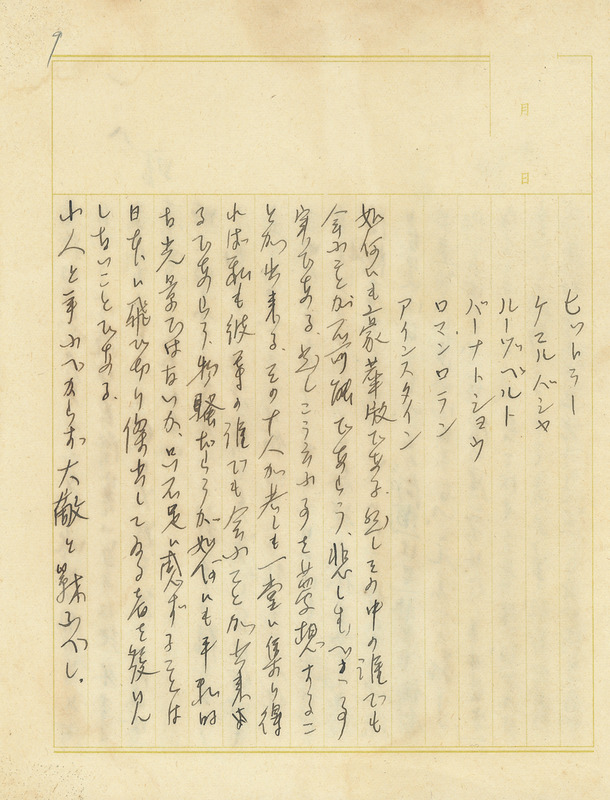 月
日
ヒットラー
ケマルパシャ
ルーヅベルト
バーナトショウ
ロマンロラン
アインスタイン
如何にも豪華版である。然しその中の誰でも
会ふことが不可能であらう、悲しむべき事
実である。然しこう云ふ事を夢想するこ
とが出来る、その十人が若しも一堂に集り得
れば私も彼等の誰でも会ふことが出来
るであらう、物騒だらうが如何にも平和的
な光景ではないか、只不足に感ずることは
日本に飛び切り傑出してゐる者を発見
しないことである。
小人と争ふべからず大敵と